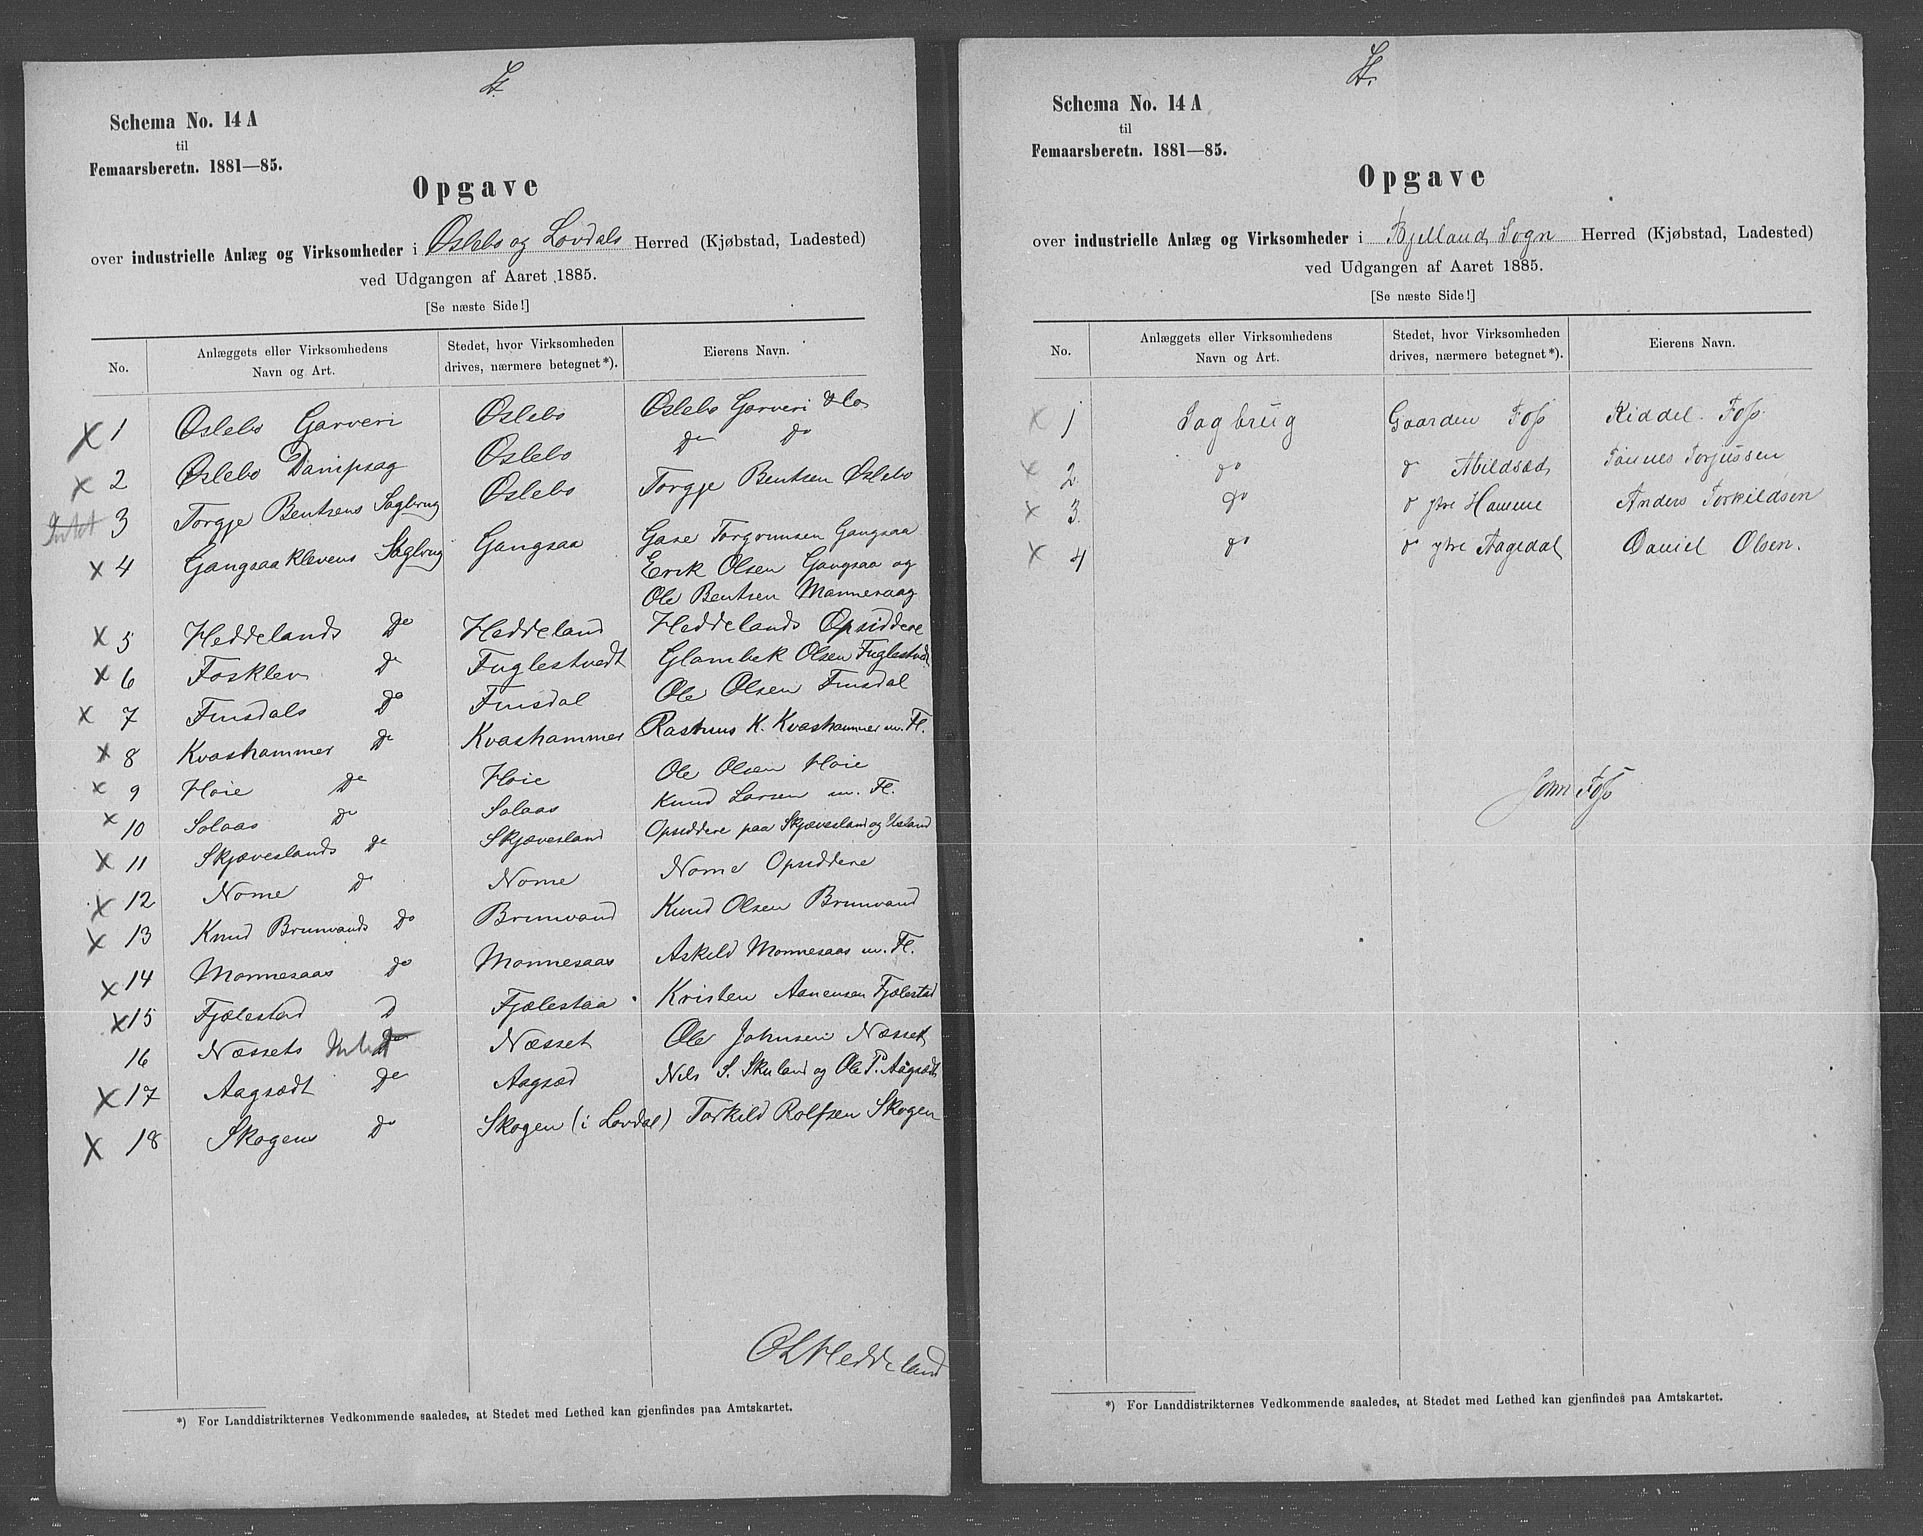 L.
Schema No. 14 A
til
Femaarsberetn. 1881—85.
Opgave
over industrielle Anlæg og Virksomheder i Øslebo og Lovdals Herred (Kjøbstad, Ladested)
ved Udgangen af Aaret 1885.
[Se næste Side!]
No. Anlæggets eller Virksomhedens Navn og Art. Stedet, hvor Virksomheden drives, nærmere betegnet*). Eierens Navn.
x 1 Øslebo Garveri Øslebo Øslebo Garveri & Co
x 2 Øslebo Dampsag Øslebo Do Do
Intet 3 Torgje Bentsens Sagbrug Øslebo Torgje Bentsen Øslebo
x 4 Gangsaaklevens Sagbrug Gangsaa Gase Torgrimsen Gangsaa
Eerik Olsen Gangsaa og
Ole Bentsen Manneraag
x 5 Heddelands Do Heddeland Heddelands Opsiddere
x 6 Fosklev Do Fuglestvedt Glambek Olsen Fuglestvedt
x 7 Finsdals Do Finsdal Ole Olsen Finsdal
x 8 Kvashammer Do Kvashammer Rasmus K. Kvashammer m. Fl.
x 9 Høie Do Høie Ole Olsen Høie
x 10 Solaas Do Solaas Knud Larsen m. Fl.
x 11 Skjæveslands Do Skjævesland Opsiddere paa Skjævesland og Usland
x 12 Nome D Nome Nome Opsiddere
x 13 Knud Brunvands Do Brunvand Knud Olsen Brunvand
x 14 Monnesaas Do Monnesaas Askild Monnesaas m. Fl.
x 15 Fjælestad D Fjælestaa Kristen Aanensen Fjælestad
16 Næssets Intet Do Næsset Ole Johnsen Næsset
x 17 Aagsædt Do Aagsæd Nils S. Skuland og Ole P. Aagsædt
x 18 Skogens Do Skogen (i Lovdal) Torkild Rolfsen Skogen
OLHeddeland
*) For Landdistrikternes Vedkommende saaledes, at Stedet med Lethed kan gjenfindes paa Amtskartet.
Schema No. 14 A
til
Femaarsberetn. 1881—85.
Opgave
over industrielle Anlæg og Virksomheder i Bjelland Sogn Herred (Kjøbstad, Ladested)
ved Udgangen af Aaret 1885.
[Se næste Side!]
No. Anlæggets eller Virksomhedens Navn og Art. Stedet, hvor Virksomheden drives, nærmere betegnet*). Eierens Navn.
x 1 Sagbrug Gaarden Foss Riddel Foss
x 2 do do Abildsæd Tønnes Torjussen
x 3 do do ytre Hamme Anders Torkildsen
x 4 do do ytre Aagedal Daniel Olsen.
Jom Foss
*) For Landdistrikternes Vedkommende saaledes, at Stedet med Lethed kan gjenfindes paa Amtskartet.